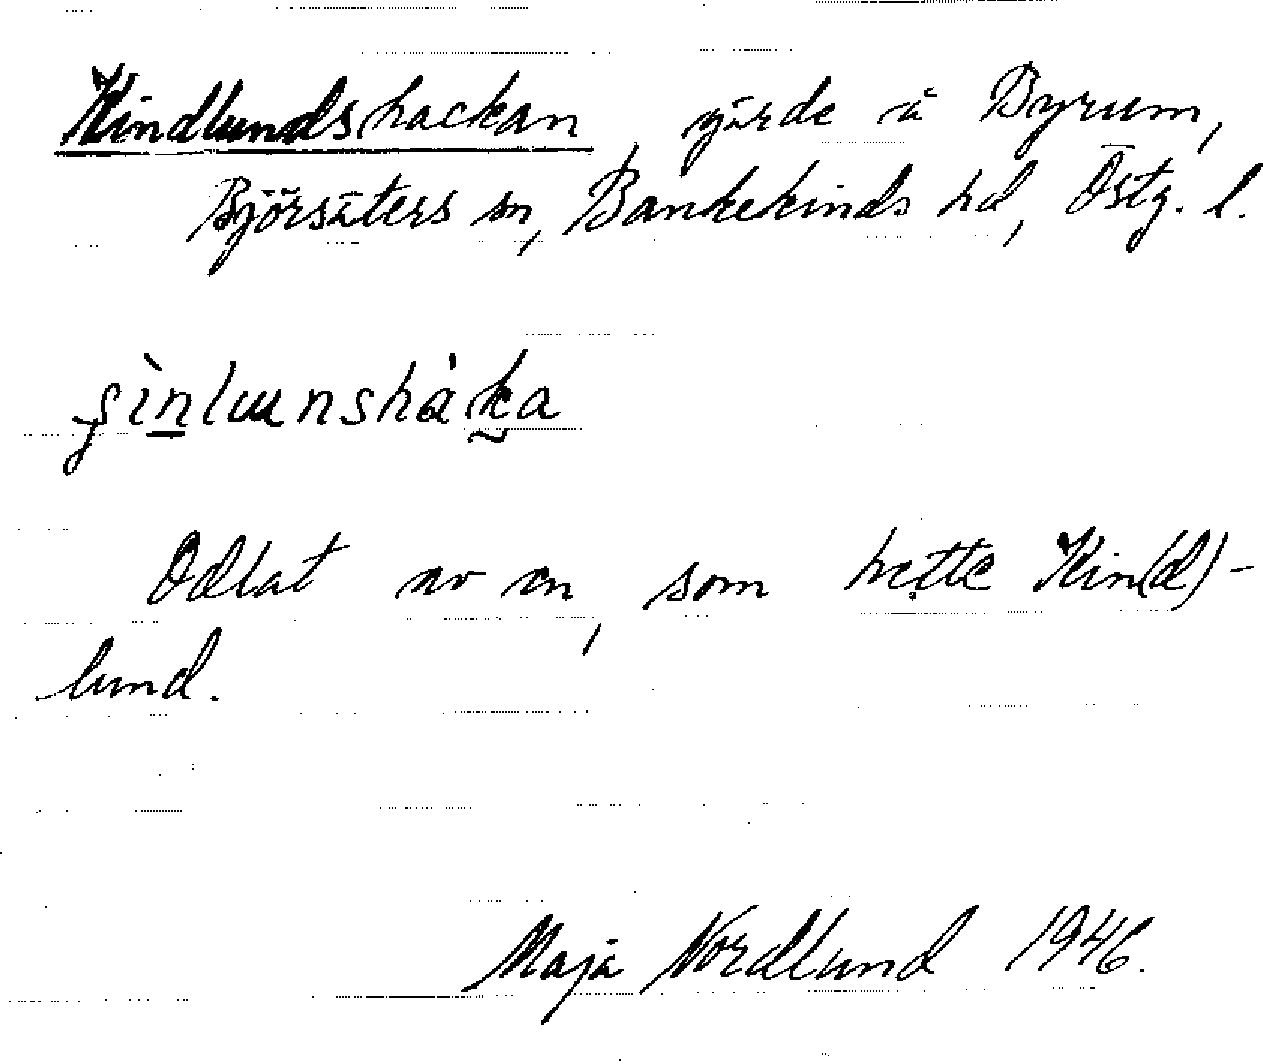 Kindlundshackan, gärde å Byrum,
Björsäters sn, Bankekinds hd, Östg. l.
Odlat av en, som hette Kin(d)-
lund.
Maja Nordlund 1946.